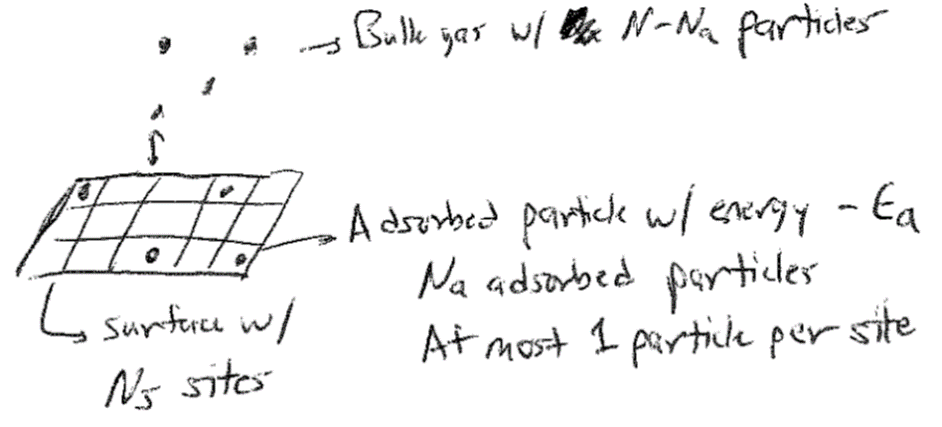 → Bulk gas w/ N-Na particles
Adsorbed particle w/ energy - Ea
Na adsorbed particles
At most 1 particle per site
surface w/
Ns sites